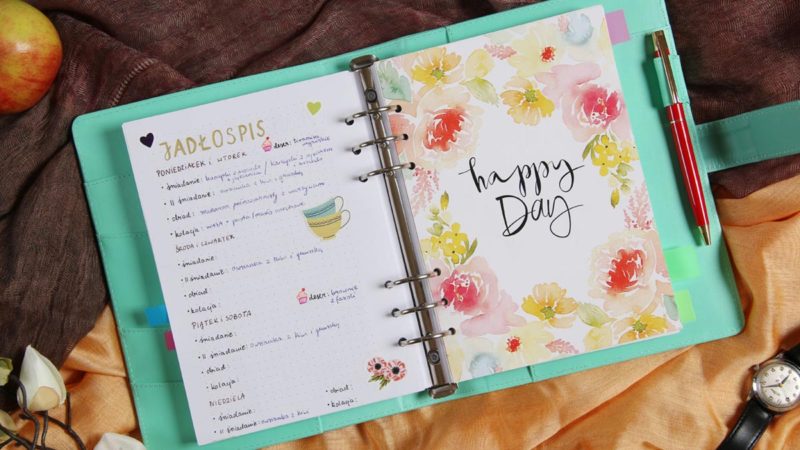 JADŁOSPIS
PONIEDZIAŁEK I WTOREK
deser:
• śniadanie: kanapki z
• II śniadanie: owsianka z kiwi i gruszką
• obiad: makaron pełnoziarnisty z warzywami
• kolacja: wasa + pasta
ŚRODA I CZWARTEK
• śniadanie:
• II śniadanie: owsianka z kiwi i gruszką
• obiad:
deser: brownie
z fasoli
• kolacja:
PIĄTEK I SOBOTA
• śniadanie:
• II śniadanie: owsianka z kiwi i gruszką
• obiad:
• kolacja:
NIEDZIELA
• śniadanie:
• obiad:
• II śniadanie: owsianka z kiwi
• kolacja:
happy
Day